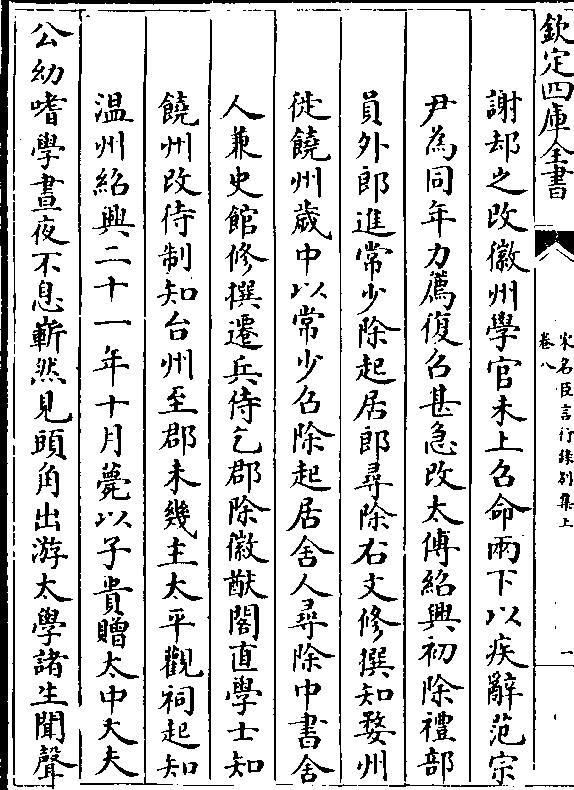 欽定四庫全書
宋名臣言行錄別集上
卷八
一
謝却之改徽州學官未上召命兩下以疾辭范宗
尹為同年力薦復召甚急改太傅紹興初除禮部
員外郎進常少除起居郎尋除右文修撰知婺州
徙饒州歲中以常少召除起居舍人尋除中書舍
人兼史館修撰遷兵侍乞郡除徽猷閣直學士知
饒州改待制知台州至郡未幾主太平觀祠起知
温州紹興二十一年十月薨以子貴贈太中大夫
公幼嗜學晝夜不息嶄然見頭角出游太學諸生聞聲